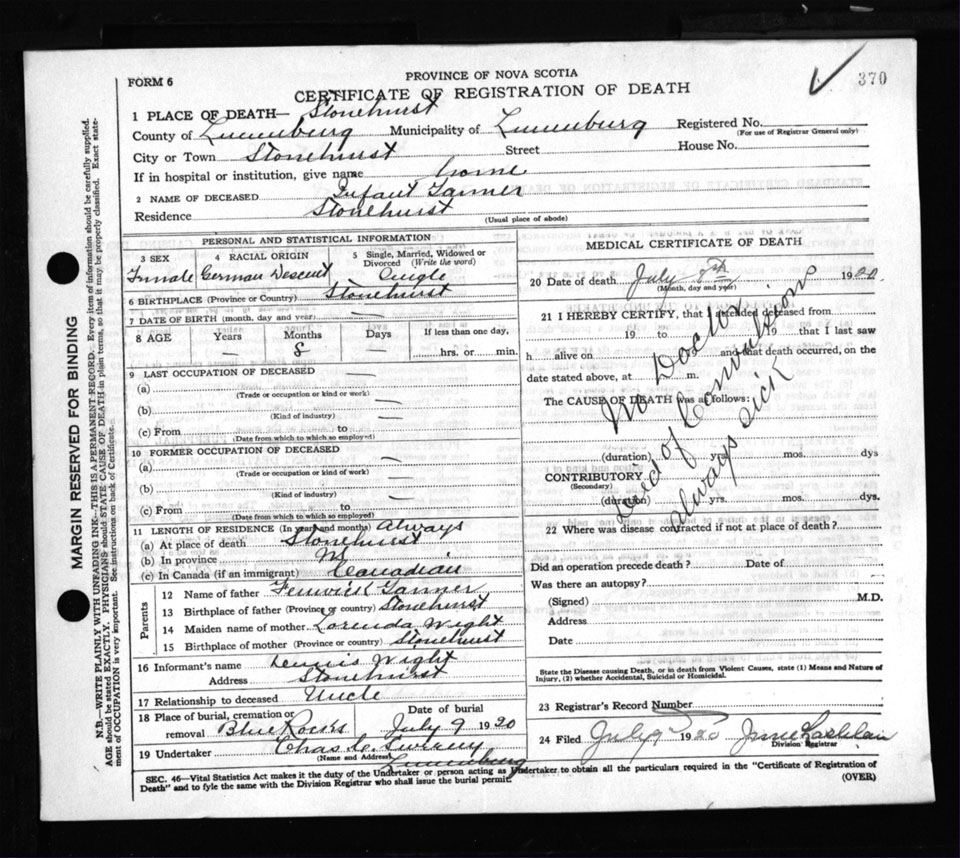 370
FORM 6
PROVINCE OF NOVA SCOTIA
CERTIFICATE OF REGISTRATION OF DEATH
1 PLACE OF DEATH— Stonehurst
County of Lunenburg Municipality of Lunenburg Registered No.
(For use of Registrar General only)
City or Town Stonehurst Street House No.
If in hospital or institution, give name home
2 NAME OF DECEASED Infant Tanner
Residence Stonehurst
(Usual place of abode)
PERSONAL AND STATISTICAL INFORMATION
3 SEX 4 RACIAL ORIGIN 5 Single, Married, Widowed or Divorced (Write the word)
Female German Descent Single
6 BIRTHPLACE (Province or Country) Stonehurst
7 DATE OF BIRTH (month, day and year) —
8 AGE Years Months Days If less than one day,
— 8 — hrs. or min.
9 LAST OCCUPATION OF DECEASED —
(a)
(Trade or occupation or kind or work)
(b) —
(Kind of industry)
(c) From to
(Date from which to which so employed)
10 FORMER OCCUPATION OF DECEASED
(a) —
(Trade or occupation or kind of work)
(b) —
(Kind of industry)
(c) From to
(Date from which to which so employed)
11 LENGTH OF RESIDENCE (In years and months) always
(a) At place of death Stonehurst
(b) In province NS
(c) In Canada (if an immigrant) Canadian
Parents
12 Name of father Fenwick Tanner
13 Birthplace of father (Province or country) Stonehurst
14 Maiden name of mother Lorenda Wight
15 Birthplace of mother (Province or country) Stonehurst
16 Informant's name Dennis Wight
Address Stonehurst
17 Relationship to deceased Uncle
18 Place of burial, cremation or removal Blue Rocks Date of burial July 9 1920
19 Undertaker Chas
(Name and Address) Lunenburg
MEDICAL CERTIFICATE OF DEATH
20 Date of death July 8th 1920
(Month, day and year)
21 I HEREBY CERTIFY, that I attended deceased from
19 to 19 that I last saw
h alive on and that death occurred, on the
date stated above, at m.
The CAUSE OF DEATH was as follows:
No Doctor
Died of Convulsions
always sick
(duration) yrs. mos. dys
CONTRIBUTORY
(Secondary)
(duration) yrs. mos. dys.
22 Where was disease contracted if not at place of death?
Did an operation precede death? Date of
Was there an autopsy?
(Signed) M.D.
Address
Date
State the Disease causing Death, or in death from Violent Causes, state (1) Means and Nature of
Injury, (2) whether Accidental, Suicidal or Homicidal.
23 Registrar's Record Number
24 Filed July 9 1920
Division Registrar
SEC. 46—Vital Statistics Act makes it the duty of the Undertaker or person acting as Undertaker to obtain all the particulars required in the "Certificate of Registration of
Death" and to fyle the same with the Division Registrar who shall issue the burial permit.
(OVER)
MARGIN RESERVED FOR BINDING
N.B.—WRITE PLAINLY WITH UNFADING INK—THIS IS A PERMANENT RECORD. Every item of information should be carefully supplied.
AGE should be stated EXACTLY. PHYSICIANS should STATE CAUSE OF DEATH in plain terms, so that it may be properly classified. Exact statement of OCCUPATION is very important. See instructions on back of Certificate.